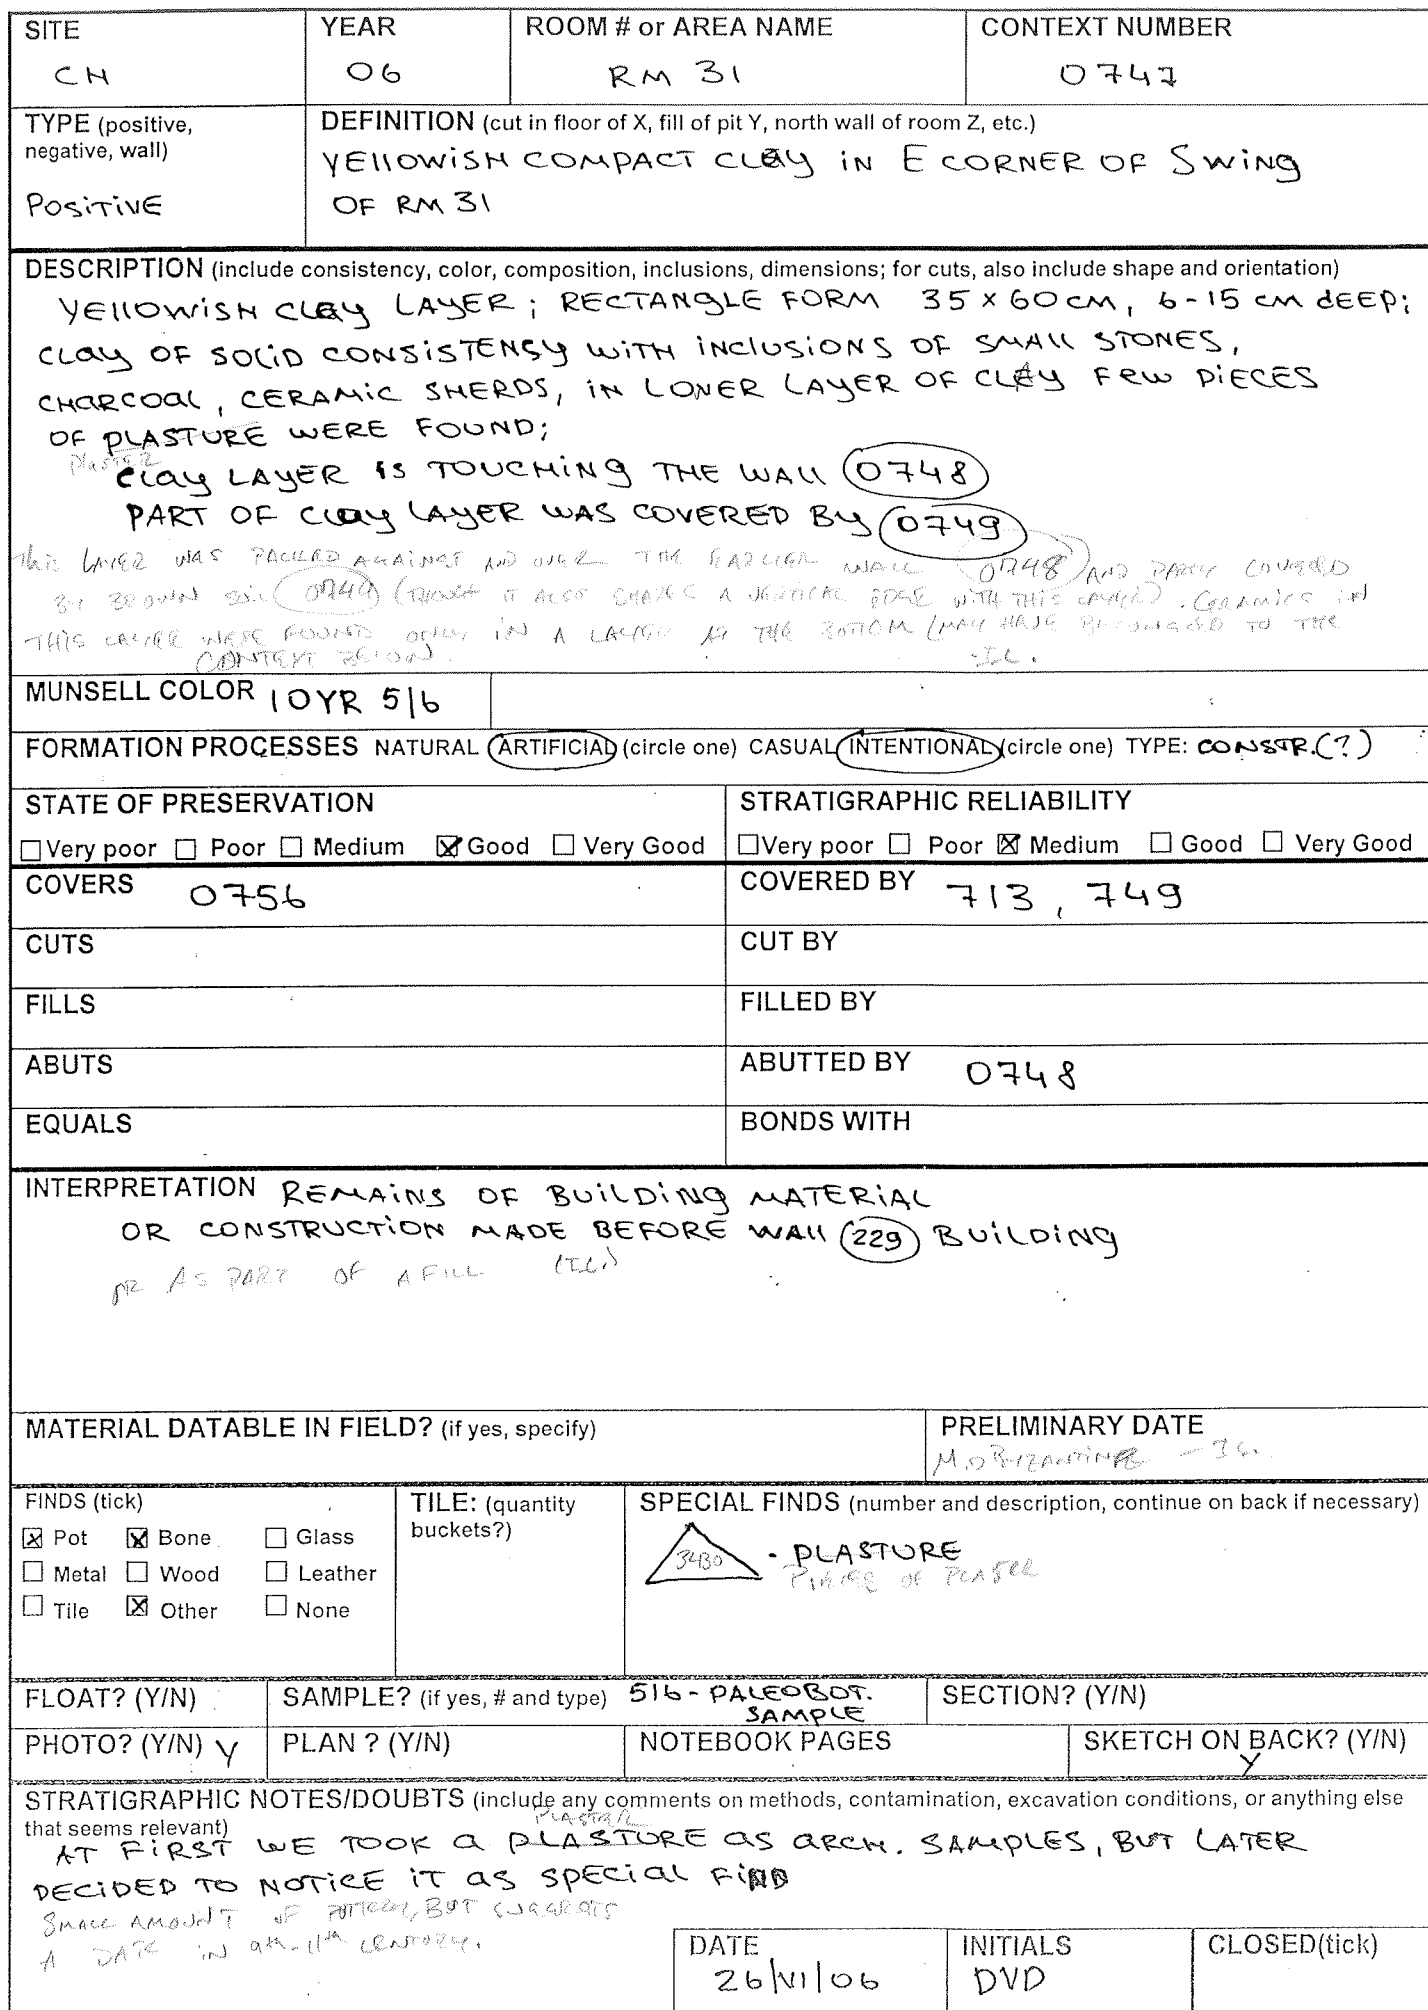 SITE YEAR ROOM # or AREA NAME CONTEXT NUMBER
CH 06 RM 31 0747
TYPE (positive, negative, wall) DEFINITION (cut in floor of X, fill of pit Y, north wall of room Z, etc.)
POSITIVE YELLOWISH COMPACT CLAY IN E CORNER OF SWING
OF RM 31
DESCRIPTION (include consistency, color, composition, inclusions, dimensions; for cuts, also include shape and orientation)
YELLOWISH CLAY LAYER; RECTANGLE FORM 35 x 60 CM, 6-15 CM DEEP;
CLAY OF SOLID CONSISTENSY WITH INCLUSIONS OF SMALL STONES,
CHARCOAL, CERAMIC SHERDS, IN LONER LAYER OF CLAY FEW PIECES
OF PLASTURE WERE FOUND;
PLASTER
CLAY LAYER IS TOUCHING THE WALL 0748
PART OF CLAY LAYER WAS COVERED BY 0749
THIS LAYER WAS PACKED AGAINST AND OVER THE EARLIER WALL 0748 AND PARTLY COVERED
BY BROWN SOIL 0749 (THOUGH IT ALSO SHARES A VERTICAL EDGE WITH THIS LAYER). CERAMICS IN
THIS LAYER WERE FOUND ONLY IN A LAYER AT THE BOTTOM (MAY HAVE BELONGED TO THE
CONTEXT BELOW. -IL.
MUNSELL COLOR 10YR 5/6
FORMATION PROCESSES NATURAL ARTIFICIAL (circle one) CASUAL INTENTIONAL (circle one) TYPE: CONSTR.(?)
STATE OF PRESERVATION STRATIGRAPHIC RELIABILITY
☐ Very poor ☐ Poor ☐ Medium ☒ Good ☐ Very Good ☐ Very poor ☐ Poor ☒ Medium ☐ Good ☐ Very Good
COVERS 0756 COVERED BY 713, 749
CUTS CUT BY
FILLS FILLED BY
ABUTS ABUTTED BY 0748
EQUALS BONDS WITH
INTERPRETATION REMAINS OF BUILDING MATERIAL
OR CONSTRUCTION MADE BEFORE WALL 229 BUILDING
OR AS PART OF A FILL (IL.)
MATERIAL DATABLE IN FIELD? (if yes, specify) PRELIMINARY DATE
BYZANTINE
FINDS (tick) TILE: (quantity buckets?) SPECIAL FINDS (number and description, continue on back if necessary)
☒ Pot ☒ Bone ☐ Glass
☐ Metal ☐ Wood ☐ Leather
☐ Tile ☒ Other ☐ None
3430 - PLASTURE
PIECES OF PLASTER
FLOAT? (Y/N) SAMPLE? (if yes, # and type) 516 - PALEOBOT. SAMPLE SECTION? (Y/N)
PHOTO? (Y/N) Y PLAN ? (Y/N) NOTEBOOK PAGES SKETCH ON BACK? (Y/N) Y
STRATIGRAPHIC NOTES/DOUBTS (include any comments on methods, contamination, excavation conditions, or anything else
that seems relevant)
PLASTER
AT FIRST WE TOOK A PLASTURE AS ARCH. SAMPLES, BUT LATER
DECIDED TO NOTICE IT AS SPECIAL FIND
SMALL AMOUNT OF POTTERY, BUT SUGGESTS
A DATE IN 9th-11th CENTURY.
DATE INITIALS CLOSED(tick)
26/VI/06 DVD